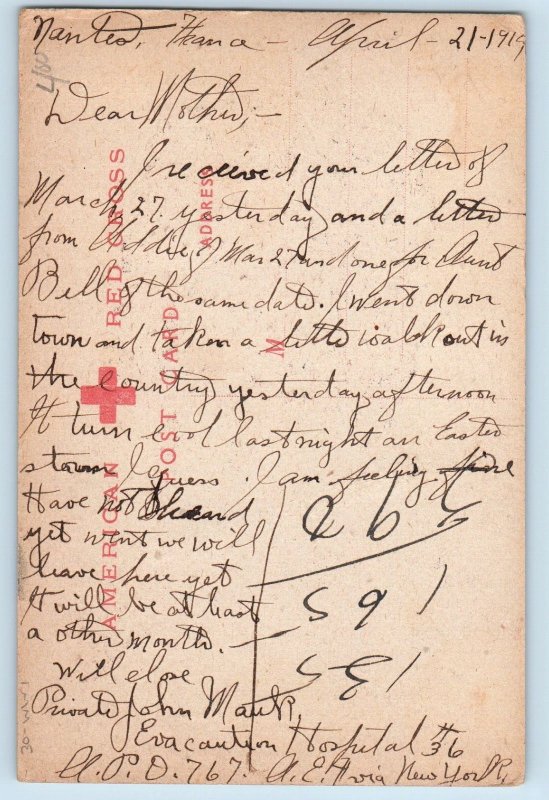 Nantes, France – April – 21 – 1919
Dear Mother; –
I received your letter of
March, 27. yesterday and a letter
from Addie of Mar 27 and one for Aunt
Bell of the same date. I went down
town and taken a little walk out in
the country yesterday afternoon
It turn cool last night an Easter
storm I guess. I am feeling fine
Have not heand
yet went we will
leave here yet
It will be at least
a other month. –
Will close
Private John Mauk,
Evacaution Hospital #36
A.P.O. 767. A.E.F. via New York,
AMERICAN RED CROSS
POST CARD
ADDRESS
M
400
30-WW1